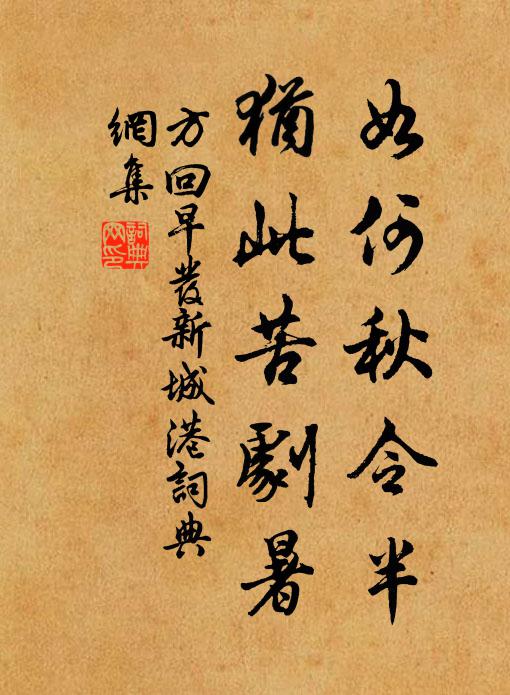 如何秋令半
猶此苦劇暑
方回早發新城港詞典
網集
詞典
網印